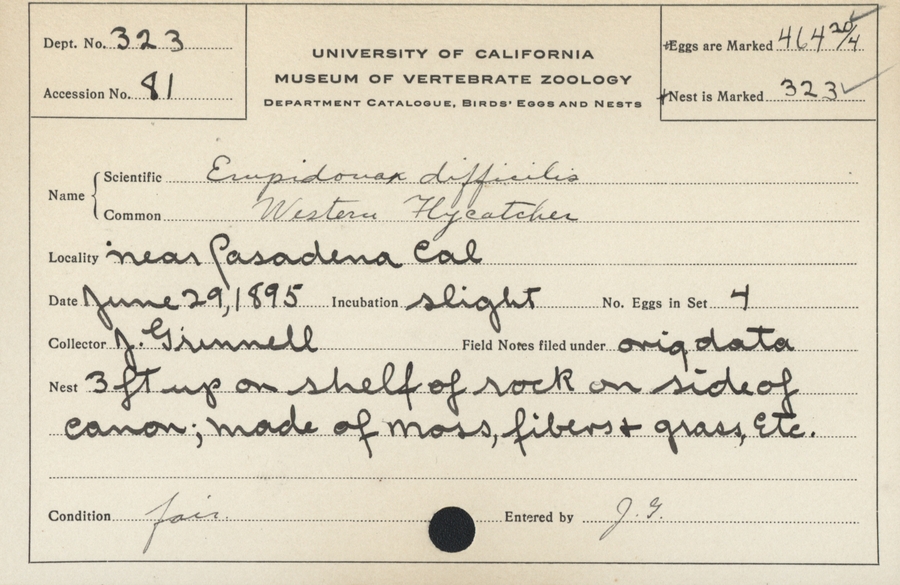 Dept. No. 323
Accession No. 81
UNIVERSITY OF CALIFORNIA
MUSEUM OF VERTEBRATE ZOOLOGY
DEPARTMENT CATALOGUE, BIRDS' EGGS AND NESTS
Eggs are Marked 464 20/4
Nest is Marked 323
Name
Scientific Empidonax difficilis
Common Western Flycatcher
Locality near Pasadena Cal
Date June 29, 1895 Incubation slight No. Eggs in Set 4
Collector J. Grinnell Field Notes filed under orig data
Nest 3 ft up on shelf of rock on side of
canon; made of moss, fibers + grass, Etc.
Condition fair. Entered by J. G.